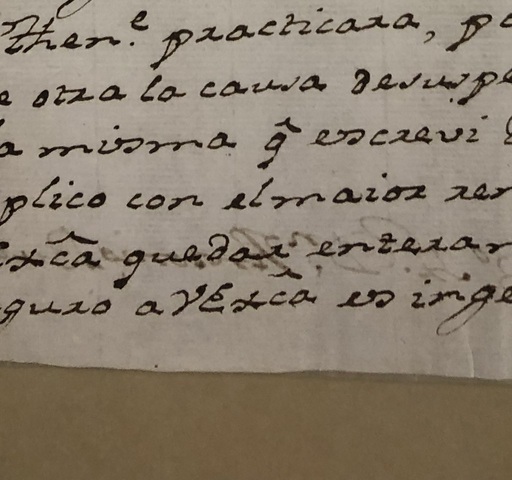 Then.e practicara, po
e otra la causa desuspe
a misma q̃ escrevi
plico con elmaior ren
Excã quedar enteram
guro a VExcã es inge